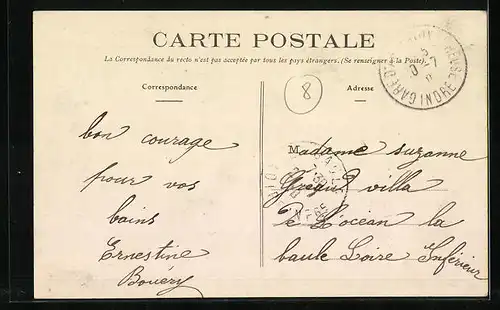 CARTE POSTALE
La Correspondance du recto n'est pas acceptée par tous les pays étrangers. (Se renseigner à la Poste).
8
Correspondance
Adresse
bon courage
pour vos
bains
Ernestine
Bouéry
Madame suzanne
villa
de L'océan la
baule Loire Inférieur
INDRE